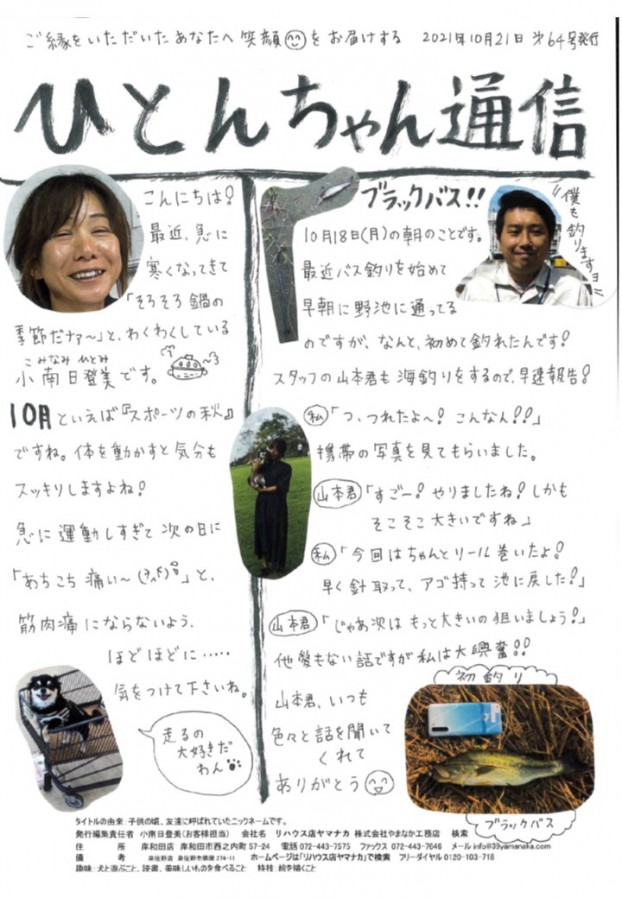 ご縁をいただいたあなたへ 笑顔をお届けする 2021年10月21日 第64号発行
ひとんちゃん通信
こんにちは!
最近、急に
寒くなってきて
「そろそろ鍋の
季節だナァ〜」と、わくわくしている
こみなみ ひとみ
小南日登美です。
10月といえば『スポーツの秋』
ですね。体を動かすと気分も
スッキリしますよね!
急に運動しすぎて次の日に
「あちこち痛い〜」と、
筋肉痛にならないよう、
ほどほどに‥‥‥
気をつけて下さいね。
走るの
大好きだ
わん
ブラックバス!!
"僕も釣りますョ"
10月18日(月)の朝のことです。
最近バス釣りを始めて
早朝に野池に通ってる
のですが、なんと、初めて釣れたんです!
スタッフの山本君も海釣りをするので、早速報告!
私「つ、つれたよ〜! こんなん!!」
携帯の写真を見てもらいました。
山本君「すごー! やりましたね! しかも
そこそこ大きいですね」
私「今回はちゃんとリール巻いたよ!
早く針取って、アゴ持って池に戻した!」
山本君「じゃあ次はもっと大きいの狙いましょう!」
他愛もない話ですが私は大興奮!!
山本君、いつも
色々と話を聞いて
くれて
ありがとう
初釣り
ブラックバス
タイトルの由来:子供の頃、友達に呼ばれていたニックネームです。
発行編集責任者 小南日登美(お客様担当) 会社名 リハウス店ヤマナカ 株式会社やまなか工務店 検索
住 所 岸和田店 岸和田市西之内町57-24 電話 072-443-7575 ファックス 072-443-7646 メール info@39yamanaka.com
備 考 泉佐野店 ホームページは「リハウス店ヤマナカ」で検索 フリーダイヤル 0120-103-718
趣味:犬と遊ぶこと、読書、美味しいものを食べること 特技:絵を描くこと